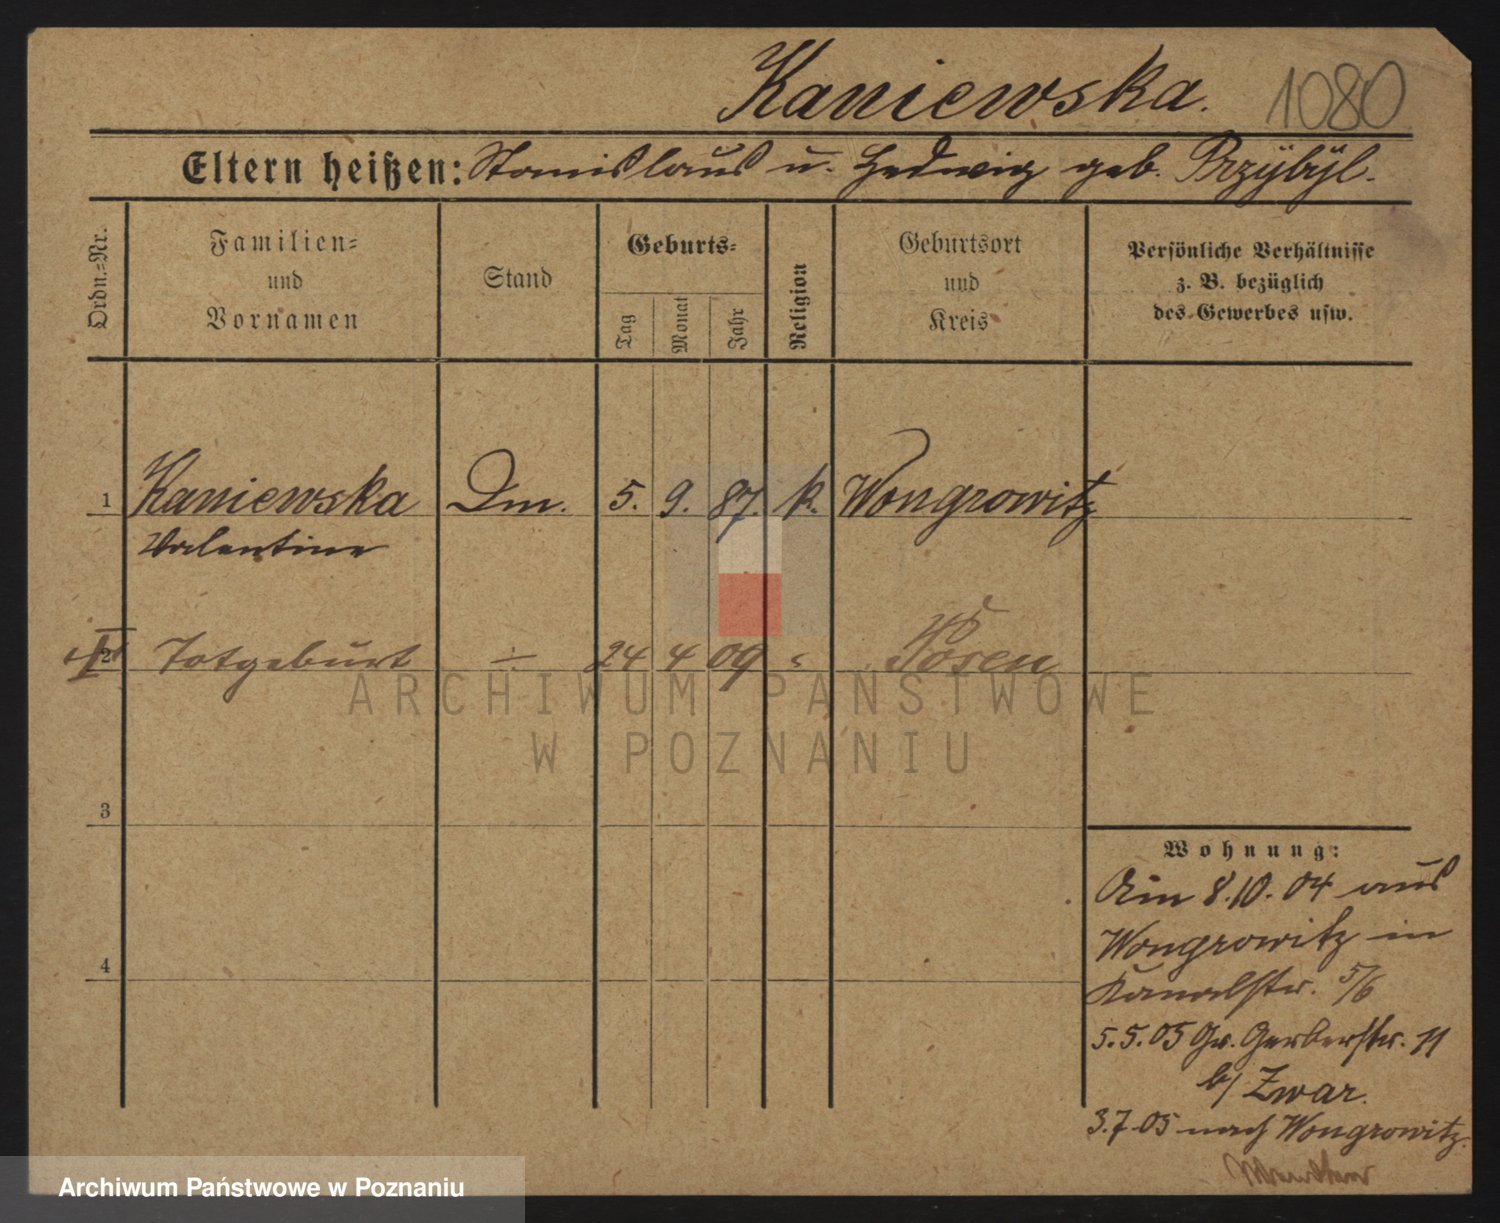 Kaniewska. 1080
Eltern heißen: Stanislaus u. Hedwig geb. Przybyl.
Ordn.-Nr.
Familien-
und
Vornamen
Stand
Geburts-
Tag
Monat
Jahr
Religion
Geburtsort
und
Kreis
Persönliche Verhältnisse
z. B. bezüglich
des Gewerbes usw.
1 Kaniewska Dm. 5. 9. 87. k. Wongrowitz
Valentine
2 Totgeburt ÷ 24 4 09 " Posen
ARCHIWUM PAŃSTWOWE
W POZNANIU
3
4
Wohnung:
Am 8.10.04 aus
Wongrowitz in
Kanalstr. 5/6
5.5.05 Gr. Gerberstr. 11
b/ Zwar.
3.7.05 nach Wongrowitz.
Archiwum Państwowe w Poznaniu